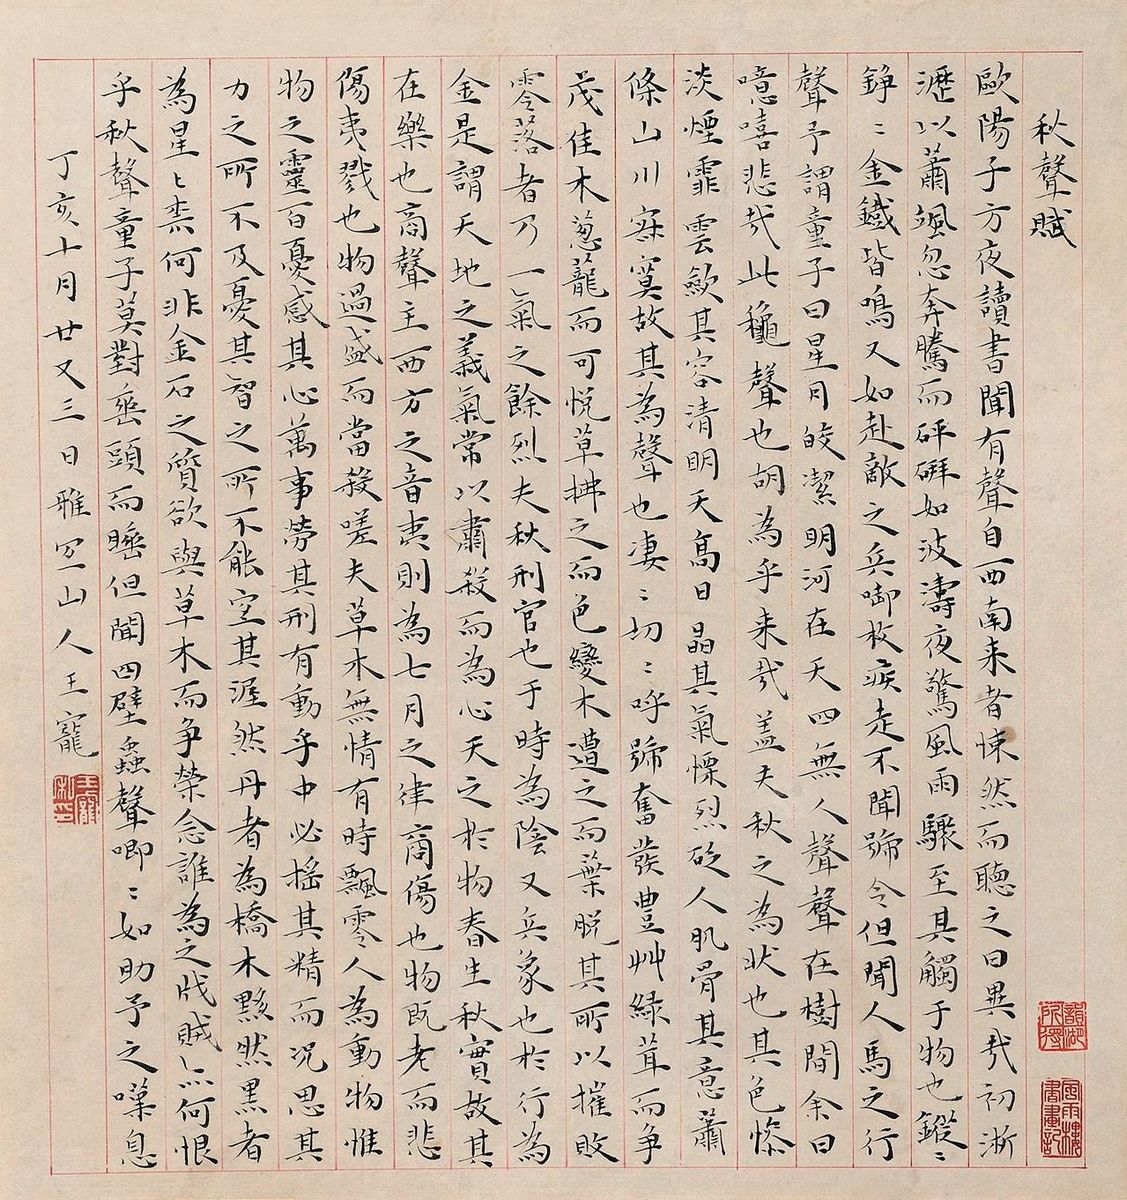 秋聲賦
歐陽子方夜讀書聞有聲自西南来者悚然而聽之曰異㢤初淅
瀝以蕭颯忽奔騰而砰磞如波濤夜驚風雨驟至其觸于物也鏦〻
錚〻金鐵皆鳴又如赴敵之兵啣枚疾走不聞號令但聞人馬之行
聲予謂童子曰星月皎潔明河在天四無人聲聲在樹間余曰
噫嘻悲㢤此龝聲也胡為乎来㢤蓋夫秋之為狀也其色慘
淡煙霏雲歛其容清明天高日晶其氣慄烈砭人肌骨其意蕭
條山川寂寞故其為聲也凄〻切〻呼號奮發豊艸綠茸而争
茂佳木蔥蘢而可悅草拂之而色變木遭之而葉脱其所以摧敗
零落者乃一氣之餘烈夫秋刑官也于時為陰又兵象也於行為
金是謂天地之義氣常以肅殺而為心天之於物春生秋實故其
在樂也商聲主西方之音夷則為七月之律商傷也物既老而悲
傷夷戮也物過盛而當殺嗟夫草木無情有時飄零人為動物惟
物之靈百憂感其心萬事勞其刑有動乎中必搖其精而况思其
力之所不及憂其智之所不能宜其渥然丹者為橋木黟然黒者
為星〻柰何非金石之質欲與草木而争榮念誰為之戕賊亦何恨
乎秋聲童子莫對垂頭而睡但聞四壁蟲聲唧〻如助予之嘆息
丁亥十月廿又三日雅宜山人王寵
王寵私印
韻湖所得
風雨樓書畫記